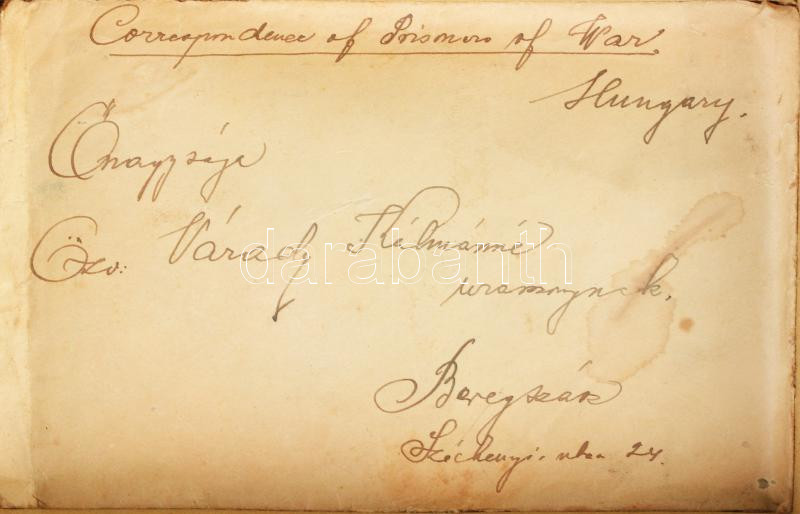 Correspondence of Prisoners of War.
Hungary.
Őnagysága
Özv: Várady Kálmánné
úrasszonynak,
Beregszász
Széchenyi-utca 24.
darabanth